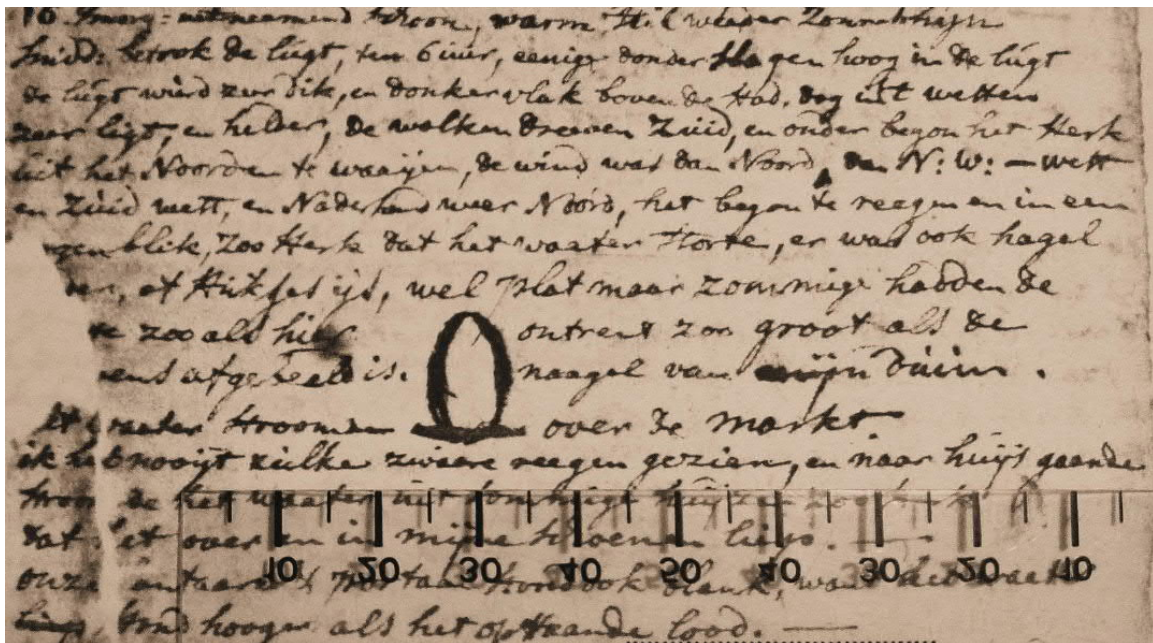 10 Smorg: uitneemend schoon, warm stil weeder Zonneschijn
Smidd: betrok de lúgt, ten 6 úúr, eenige donder slagen hoog in de lúgt
de lúgt wierd zeer dik, en donker vlak boven de stad, dog int westen
zeer ligt, en helder, de wolken dreeven Zúid, en onder begon het sterk
úit het Noorden te waaijen, de wind was dan Noord, dan N: W: — west
en Zúid west, en Naderhand weer Noord, het begon te reegenen in een
genblik, zoo sterk dat het waater storte, er was ook hagel
stúkjes ijs, wel plat maar zommige hadden de
zoo als hier ontrent zoo groot als de
afgebeeld is. naagel van mijn dúim.
waater stroomde over de markt
ik nooijt zúlke zwaare reegen gezien, en naar húijs gaande
de het waater úit sommige húijzen
dat het over en in mijne schoenen liep.
onze stond ook blank, want het waater
stond hooger als het opstaande lood. —
10 20 30 40 50 40 30 20 10